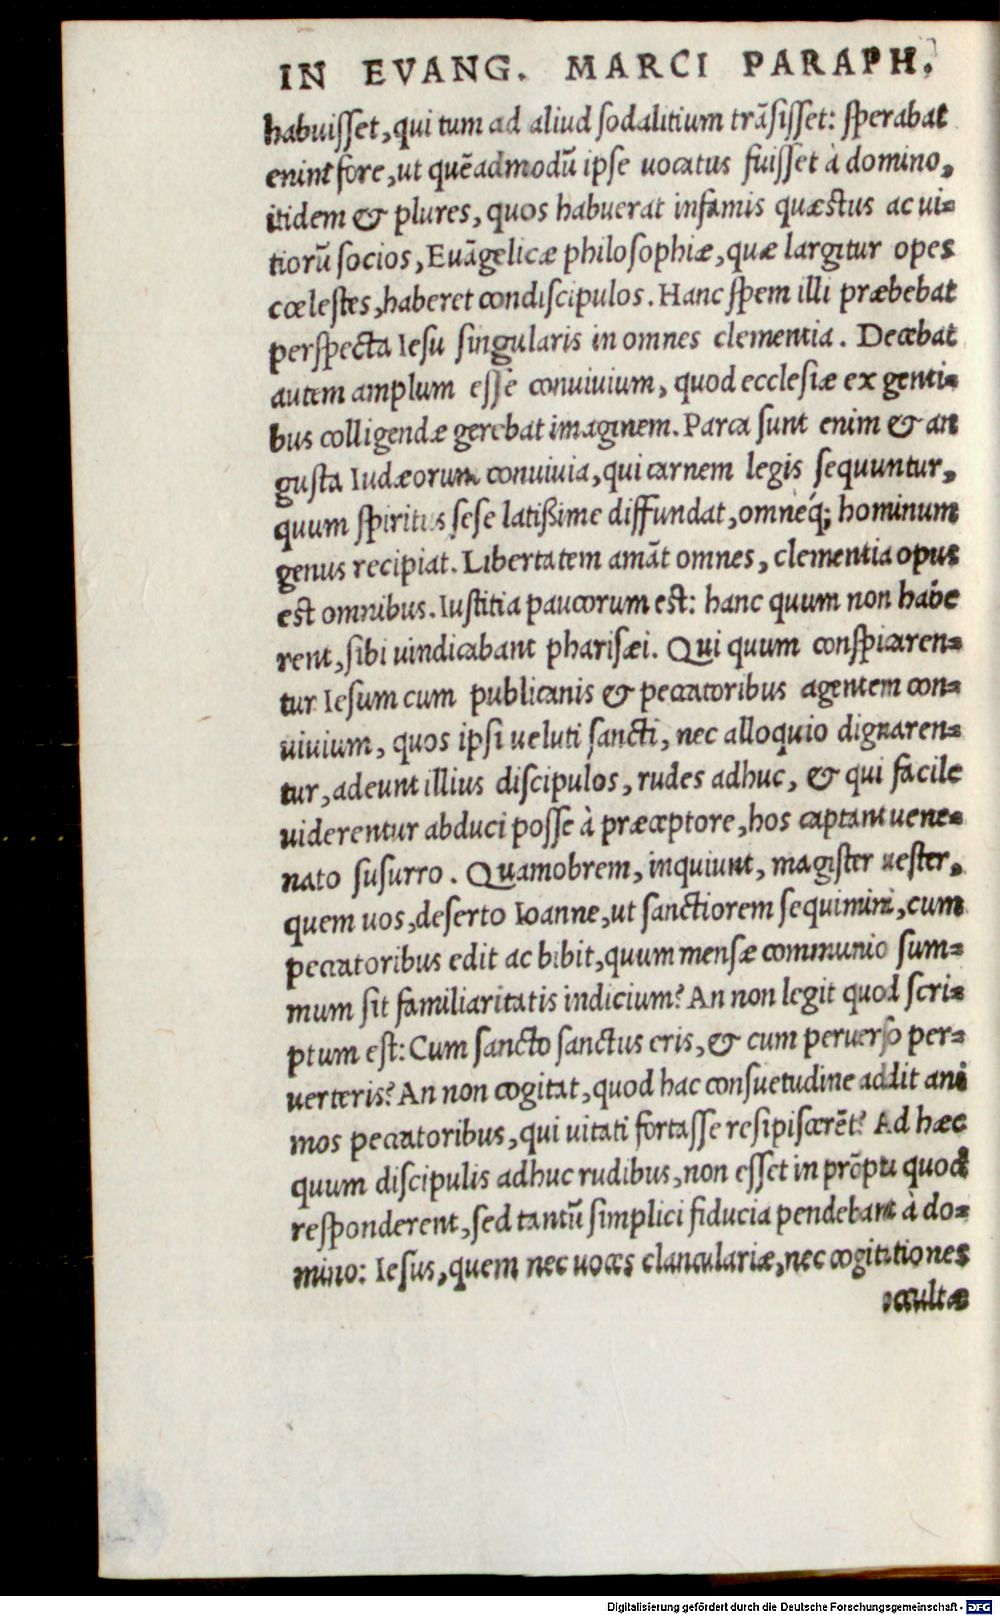 IN EVANG. MARCI PARAPH.
habuiſſet, qui tum ad aliud ſodalitium trãſiſſet: ſperabat
enim fore, ut quẽadmodũ ipſe uocatus fuiſſet à domino,
itidem & plures, quos habuerat infamis quæſtus ac ui=
tiorũ ſocios, Euãgelicæ philoſophiæ, quæ largitur opes
cœleſtes, haberet condiſcipulos. Hanc ſpem illi præbebat
perſpecta Ieſu ſingularis in omnes clementia. Decebat
autem amplum eſſe conuiuium, quod eccleſiæ ex genti=
bus colligendæ gerebat imaginem. Parca ſunt enim & an
guſta Iudæorum conuiuia, qui carnem legis ſequuntur,
quum ſpiritus ſeſe latißime diffundat, omneq́; hominum
genus recipiat. Libertatem amãt omnes, clementia opus
eſt omnibus. Iuſtitia paucorum eſt: hanc quum non habe
rent, ſibi uindicabant phariſæi. Qui quum conſpicaren=
tur Ieſum cum publicanis & peccatoribus agentem con=
uiuium, quos ipſi ueluti ſancti, nec alloquio dignaren=
tur, adeunt illius diſcipulos, rudes adhuc, & qui facile
uiderentur abduci poſſe à præceptore, hos captant uene=
nato ſuſurro. Quamobrem, inquiunt, magiſter ueſter,
quem uos, deſerto Ioanne, ut ſanctiorem ſequimini, cum
peccatoribus edit ac bibit, quum menſæ communio ſum=
mum ſit familiaritatis indicium? An non legit quod ſcri=
ptum eſt: Cum ſancto ſanctus eris, & cum peruerſo per=
uerteris? An non cogitat, quod hac conſuetudine addit ani
mos peccatoribus, qui uitati fortaſſe reſipiſcerẽt? Ad hæc
quum diſcipulis adhuc rudibus, non eſſet in prõptu quod
reſponderent, ſed tantũ ſimplici fiducia pendebant à do=
mino: Ieſus, quem nec uoces clanculariæ, nec cogitationes
occultæ
Digitalisierung gefördert durch die Deutsche Forschungsgemeinschaft - DFG